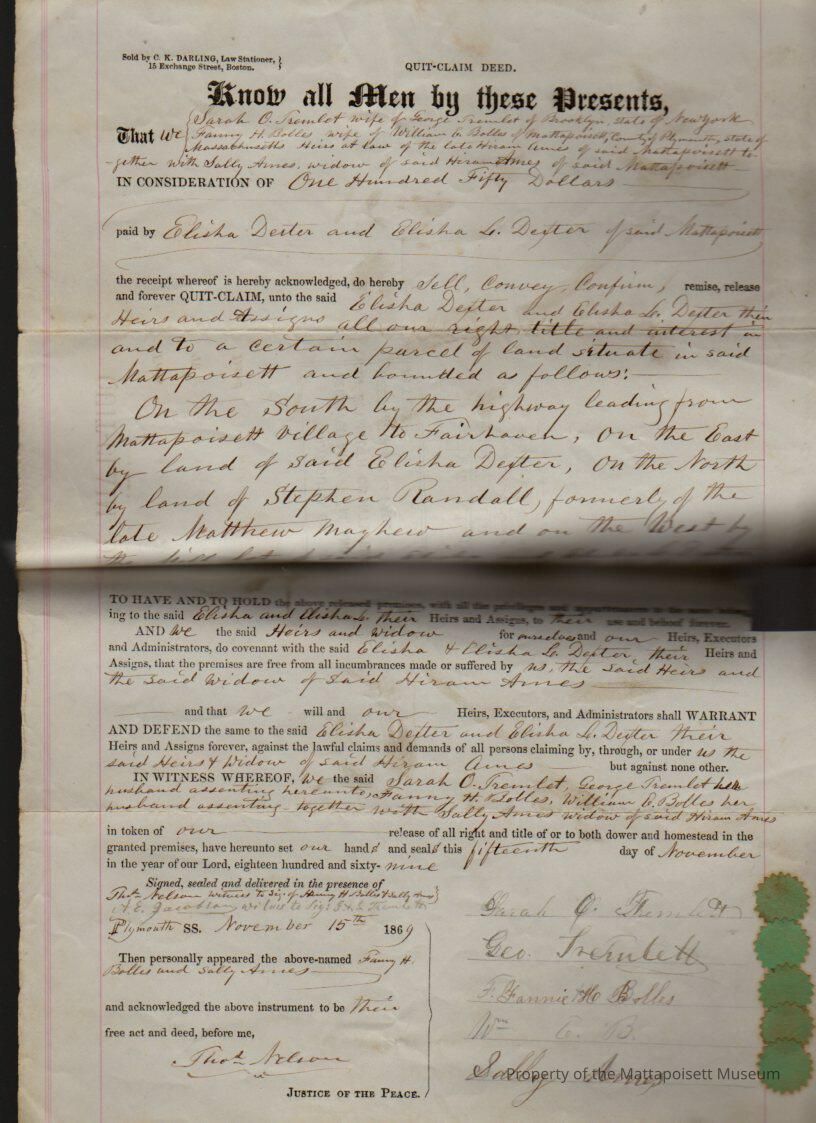 Sold by C. K. DARLING, Law Stationer,
15 Exchange Street, Boston.
QUIT-CLAIM DEED.
Know all Men by these Presents,
That we Sarah O. Tremlet wife of George Tremlet of Brooklyn, State of New york
Fanny H. Bolles, wife of William C. Bolles of Mattapoisett, County of Plymouth, state of
Massachusetts Heirs at law of the late Hiram Ames of said Mattapoisett to-
gether with Sally Ames, widow of said Hiram Ames of said Mattapoisett
IN CONSIDERATION OF One Hundred Fifty Dollars
paid by Elisha Dexter and Elisha L. Dexter of said Mattapoisett
the receipt whereof is hereby acknowledged, do hereby Sell, Convey, Confirm, remise, release
and forever QUIT-CLAIM, unto the said Elisha Dexter and Elisha L. Dexter their
Heirs and Assigns all our right title and interest in
and to a certain parcel of land situate in said
Mattapoisett and bounded as follows:
On the South by the highway leading from
Mattapoisett Village to Fairhaven, On the East
by land of said Elisha Dexter, On the North
by land of Stephen Randall, formerly of the
late Matthew Mayhew and on the West by
TO HAVE AND TO HOLD the above released premises, with all the privileges and appurtenances to the same belong-
ing to the said Elisha and Elisha L. their Heirs and Assigns, to their use and behoof forever.
AND we the said Heirs and widow for ourselves and our Heirs, Executors
and Administrators, do covenant with the said Elisha & Elisha L. Dexter, their Heirs and
Assigns, that the premises are free from all incumbrances made or suffered by us, the said Heirs and
the said widow of said Hiram Ames
and that we will and our Heirs, Executors, and Administrators shall WARRANT
AND DEFEND the same to the said Elisha Dexter and Elisha L. Dexter their
Heirs and Assigns forever, against the lawful claims and demands of all persons claiming by, through, or under us the
said Heirs & Widow of said Hiram Ames but against none other.
IN WITNESS WHEREOF, we the said Sarah O. Tremlet, George Tremlet her
husband assenting hereunto, Fanny H. Bolles, William C. Bolles her
husband assenting together with Sally Ames widow of said Hiram Ames
in token of our release of all right and title of or to both dower and homestead in the
granted premises, have hereunto set our hands and seals this fifteenth day of November
in the year of our Lord, eighteen hundred and sixty-nine
Signed, sealed and delivered in the presence of
Thos. Nelson witness to Sig. of Fanny H Bolles & Sally Ames
Plymouth SS. November 15th 1869
Then personally appeared the above-named Fanny H.
Bolles and Sally Ames
and acknowledged the above instrument to be their
free act and deed, before me,
Thos. Nelson
JUSTICE OF THE PEACE.
Sarah O. Tremlett
Geo. Tremlett
F. Fannie H Bolles
Wm C. B.
Sally Ames
Property of the Mattapoisett Museum